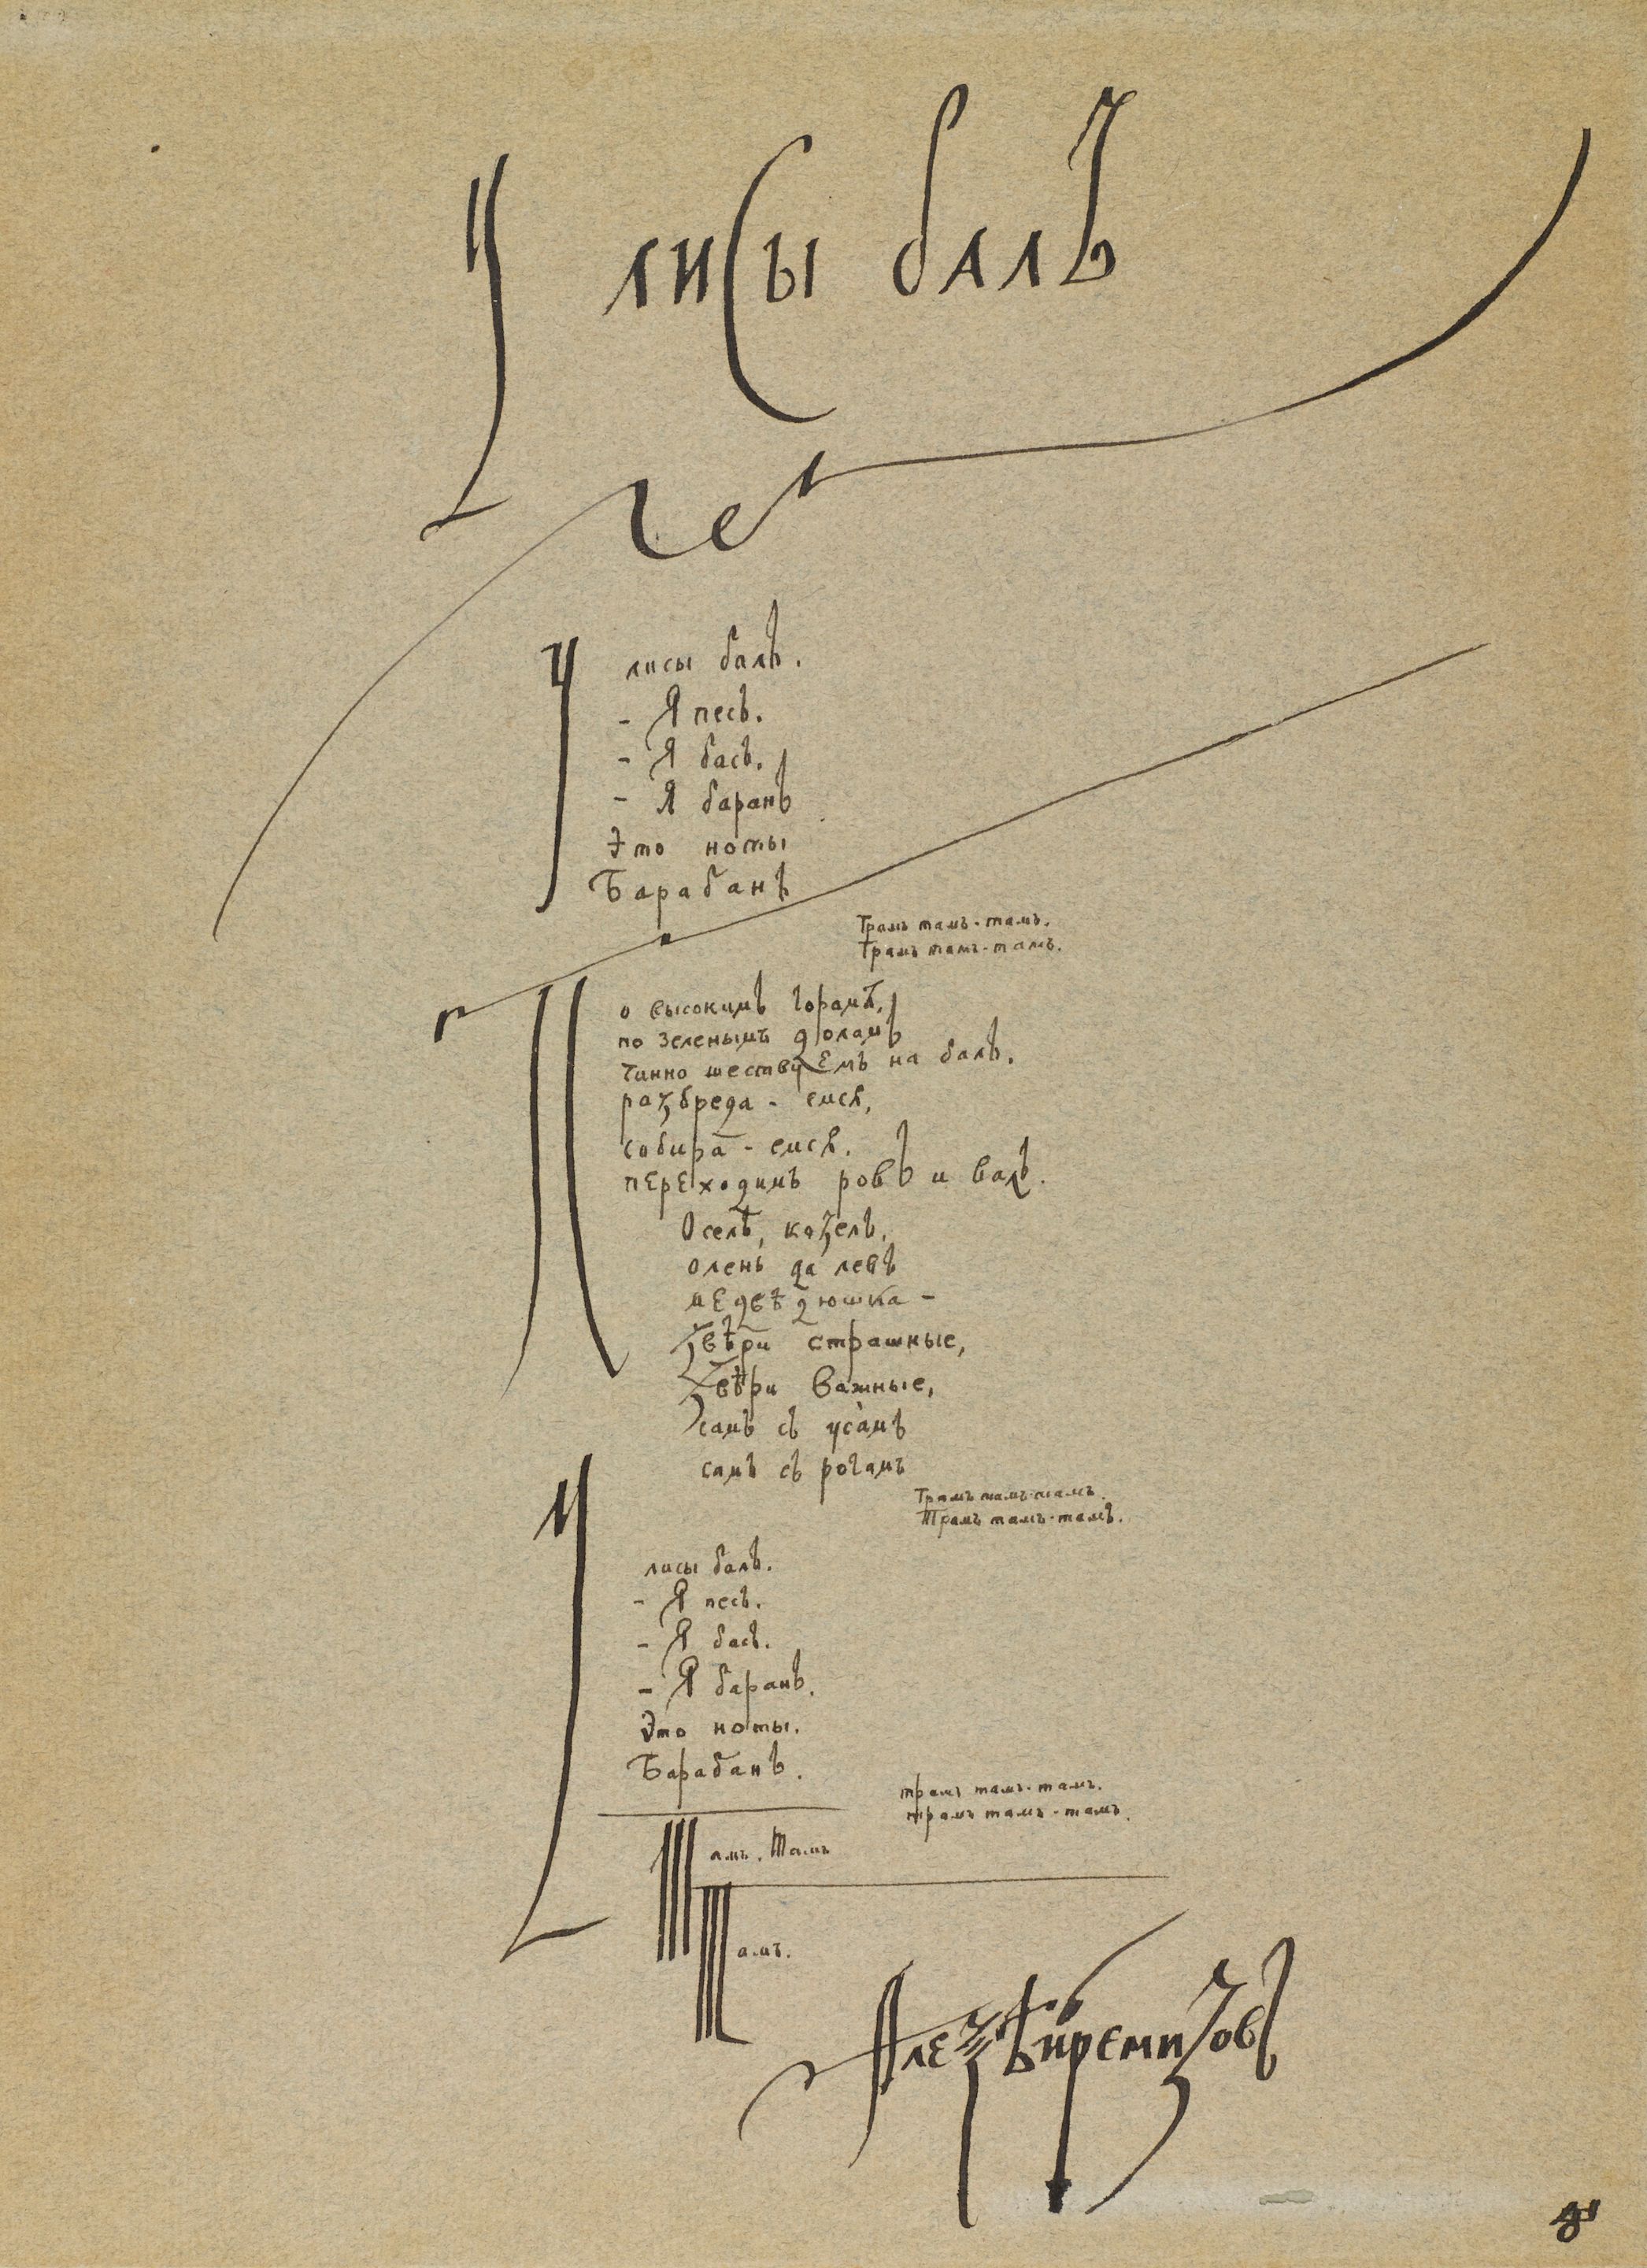 У лисы балъ
У лисы балъ.
- Я песъ.
- Я басъ.
- Я баранъ
Это ноты
Барабанъ
Трамъ тамъ-тамъ.
Трамъ тамъ-тамъ.
По высокимъ горамъ,
по зеленымъ доламъ
Чинно шествуемъ на балъ.
разбреда-емся,
собира-емся.
переходимъ ровъ и валъ.
Оселъ, козелъ,
олень да левъ
медвѣдюшка -
Звѣри страшные,
Звѣри важные,
самъ съ усàмъ
самъ съ рогамъ
Трамъ тамъ-тамъ.
Трамъ тамъ-тамъ.
У лисы балъ.
- Я песъ.
- Я басъ.
- Я баранъ.
Это ноты.
Барабанъ.
трамъ тамъ-тамъ.
трамъ тамъ-тамъ.
Тамъ. Тамъ
Тамъ.
Алезѣй Ремизовъ